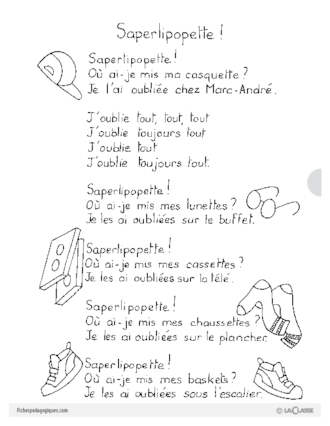 Saperlipopette !
Saperlipopette !
Où ai-je mis ma casquette ?
Je l'ai oubliée chez Marc-André.
J'oublie tout, tout, tout
J'oublie toujours tout
J'oublie tout
J'oublie toujours tout.
Saperlipopette !
Où ai-je mis mes lunettes ?
Je les ai oubliées sur le buffet.
Saperlipopette !
Où ai-je mis mes cassettes ?
Je les ai oubliées sur la télé.
Saperlipopette !
Où ai-je mis mes chaussettes ?
Je les ai oubliées sur le plancher.
Saperlipopette !
Où ai-je mis mes baskets ?
Je les ai oubliées sous l'escalier.
Fichespedagogiques.com
© LA CLASSE